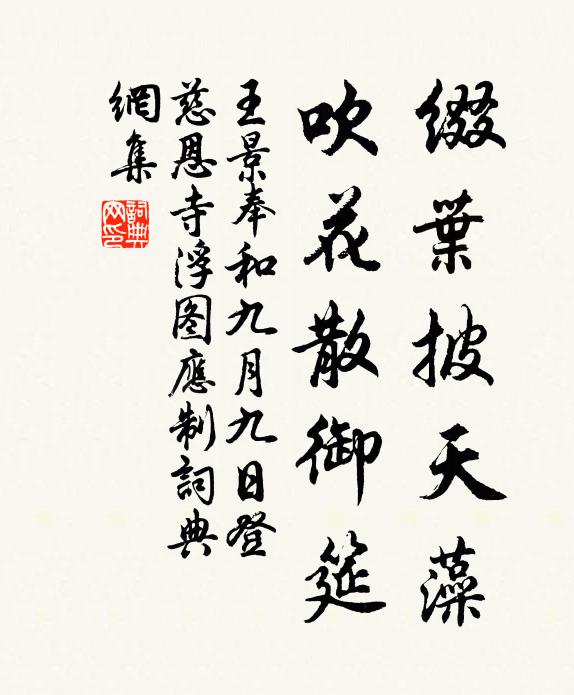 綴葉披天藻
吹花散御筵
王景奉和九月九日登
慈恩寺浮图應制詞典
網集
詞典網印